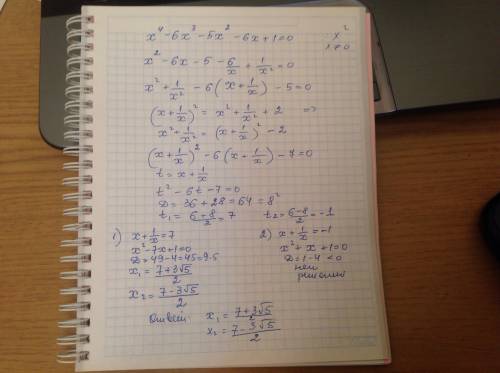 x⁴ - 6x³ - 5x² - 6x + 1 = 0
x²
x ≠ 0
x² - 6x - 5 - 6/x + 1/x² = 0
x² + 1/x² - 6(x + 1/x) - 5 = 0
(x + 1/x)² = x² + 1/x² + 2 =>
x² + 1/x² = (x + 1/x)² - 2
(x + 1/x)² - 6(x + 1/x) - 7 = 0
t = x + 1/x
t² - 6t - 7 = 0
D = 36 + 28 = 64 = 8²
t₁ = (6+8)/2 = 7 t₂ = (6-8)/2 = -1
1) x + 1/x = 7
x² - 7x + 1 = 0
D = 49 - 4 = 45 = 9·5
x₁ = (7+3√5)/2
x₂ = (7-3√5)/2
2) x + 1/x = -1
x² + x + 1 = 0
D = 1 - 4 < 0
нет
решений
Ответ: x₁ = (7+3√5)/2
x₂ = (7-3√5)/2